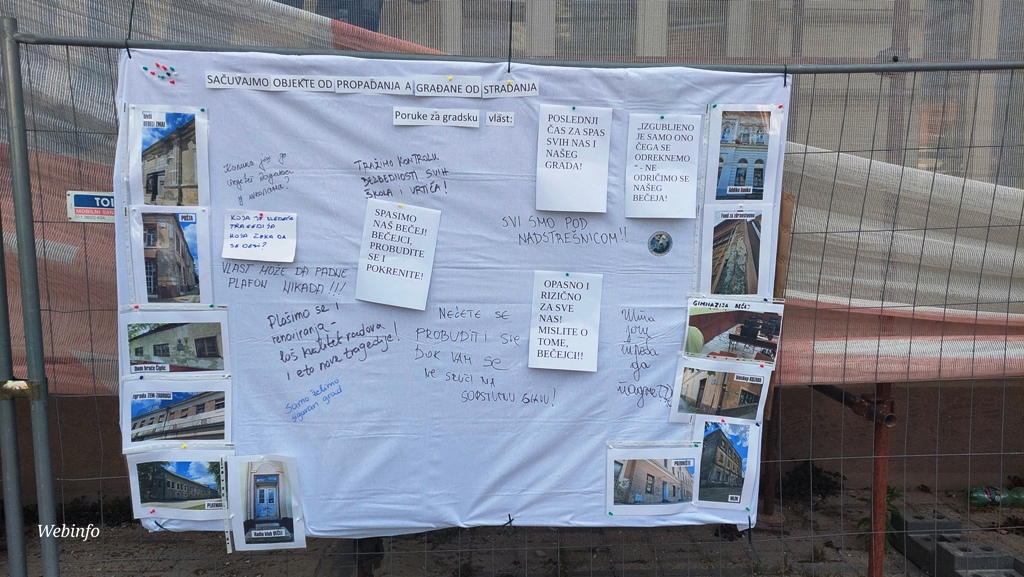 SAČUVAJMO OBJEKTE OD PROPADANJA A GRAĐANE OD STRADANJA
Poruke za gradsku vlast:
POSLEDNJI
ČAS ZA SPAS
SVIH NAS I
NAŠEG
GRADA!
„IZGUBLJENO
JE SAMO ONO
ČEGA SE
ODREKNEMO
" - NE
ODRIČIMO SE
NAŠEG
BEČEJA!
TRAŽIMO KONTROLU
BEZBEDNOSTI SVIH
ŠKOLA I VRTIĆA!
KOJA JE SLEDEĆA
TRAGEDIJA
KOJA ČEKA DA
SE DESI?
SPASIMO
NAŠ BEČEJ!
BEČEJCI,
PROBUDITE
SE I
POKRENITE!
SVI SMO POD
NADSTREŠNICOM!!
VLAST MOŽE DA PADNE
PLAFON NIKADA!!!
OPASNO I
RIZIČNO
ZA SVE
NAS!
MISLITE O
TOME,
BEČEJCI!!
Plašimo se i
renoviranja -
loš kvalitet radova
i eto nove tragedije!
NEĆETE SE
PROBUDITI
DOK VAM SE
NE SRUČI NA
SOPSTVENU GLAVU!
Samo želimo
siguran grad
PošTA
Dom braće Čipić
zgrada ŽEM-FABRIKE
PLATMAN
Radio klub BEČEJ
Fond za zdravstveno
GIMNAZIJA BEČEJ
bioskop
MLIN
TOI
MOBILNI
Webinfo